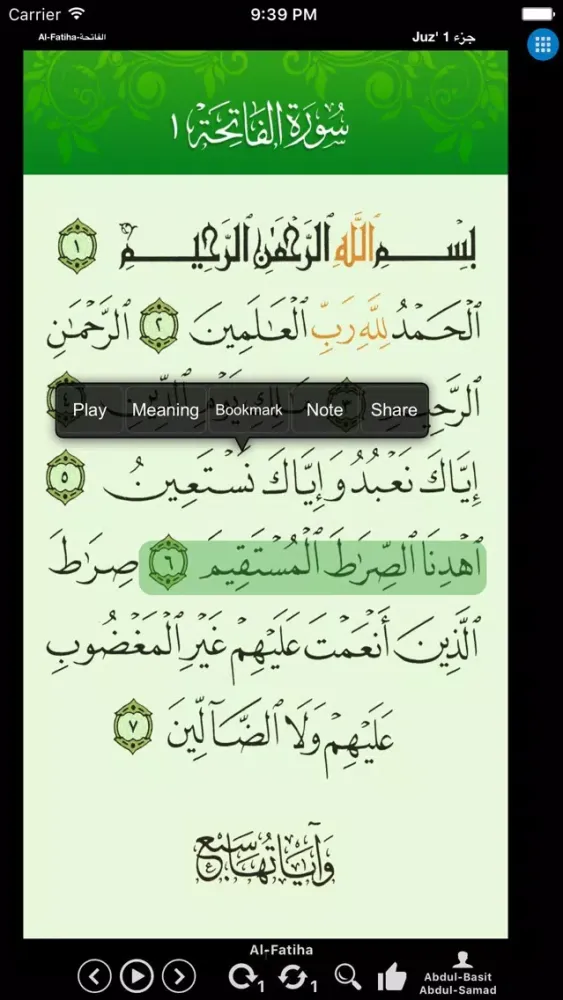 Carrier 9:39 PM
Al-Fatiha-الفاتحة Juz' 1 جزء
سُورَةُ الفَاتِحَة ١
بِسْمِ ٱللَّهِ ٱلرَّحْمَٰنِ ٱلرَّحِيمِ ١
ٱلْحَمْدُ لِلَّهِ رَبِّ ٱلْعَٰلَمِينَ ٢ ٱلرَّحْمَٰنِ
ٱلرَّحِيمِ ٣ مَٰلِكِ يَوْمِ ٱلدِّينِ ٤
Play Meaning Bookmark Note Share
إِيَّاكَ نَعْبُدُ وَإِيَّاكَ نَسْتَعِينُ ٥
ٱهْدِنَا ٱلصِّرَٰطَ ٱلْمُسْتَقِيمَ ٦ صِرَٰطَ
ٱلَّذِينَ أَنْعَمْتَ عَلَيْهِمْ غَيْرِ ٱلْمَغْضُوبِ
عَلَيْهِمْ وَلَا ٱلضَّآلِّينَ ٧
وَآيَاتُهَا سَبْعٌ
Al-Fatiha
1 1
Abdul-Basit
Abdul-Samad